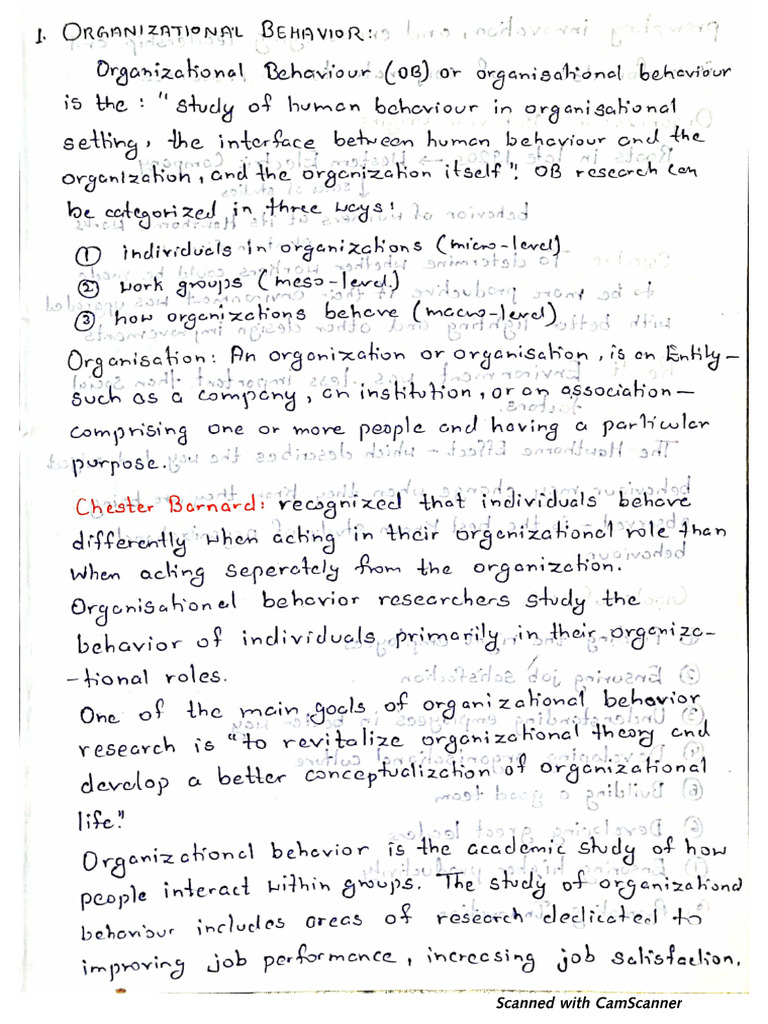 1. ORGANIZATIONAL BEHAVIOR:
Organizational Behaviour (OB) or organisational behaviour
is the : "study of human behaviour in organisational
setting, the interface between human behaviour and the
organization, and the organization itself". OB research can
be categorized in three ways:
① individuals in organizations (micro-level)
② work groups (meso-level)
③ how organizations behave (macro-level)
Organisation: An organization or organisation, is an Entity –
such as a company, an institution, or an association –
comprising one or more people and having a particular
purpose.
Chester Barnard: recognized that individuals behave
differently when acting in their organizational role than
when acting seperately from the organization.
Organisational behavior researchers study the
behavior of individuals primarily in their organiza-
-tional roles.
One of the main goals of organizational behavior
research is "to revitalize organizational theory and
develop a better conceptualization of organizational
life."
Organizational behavior is the academic study of how
people interact within groups. The study of organizational
behaviour includes areas of research dedicated to
improving job performance, increasing job satisfaction,
Scanned with CamScanner